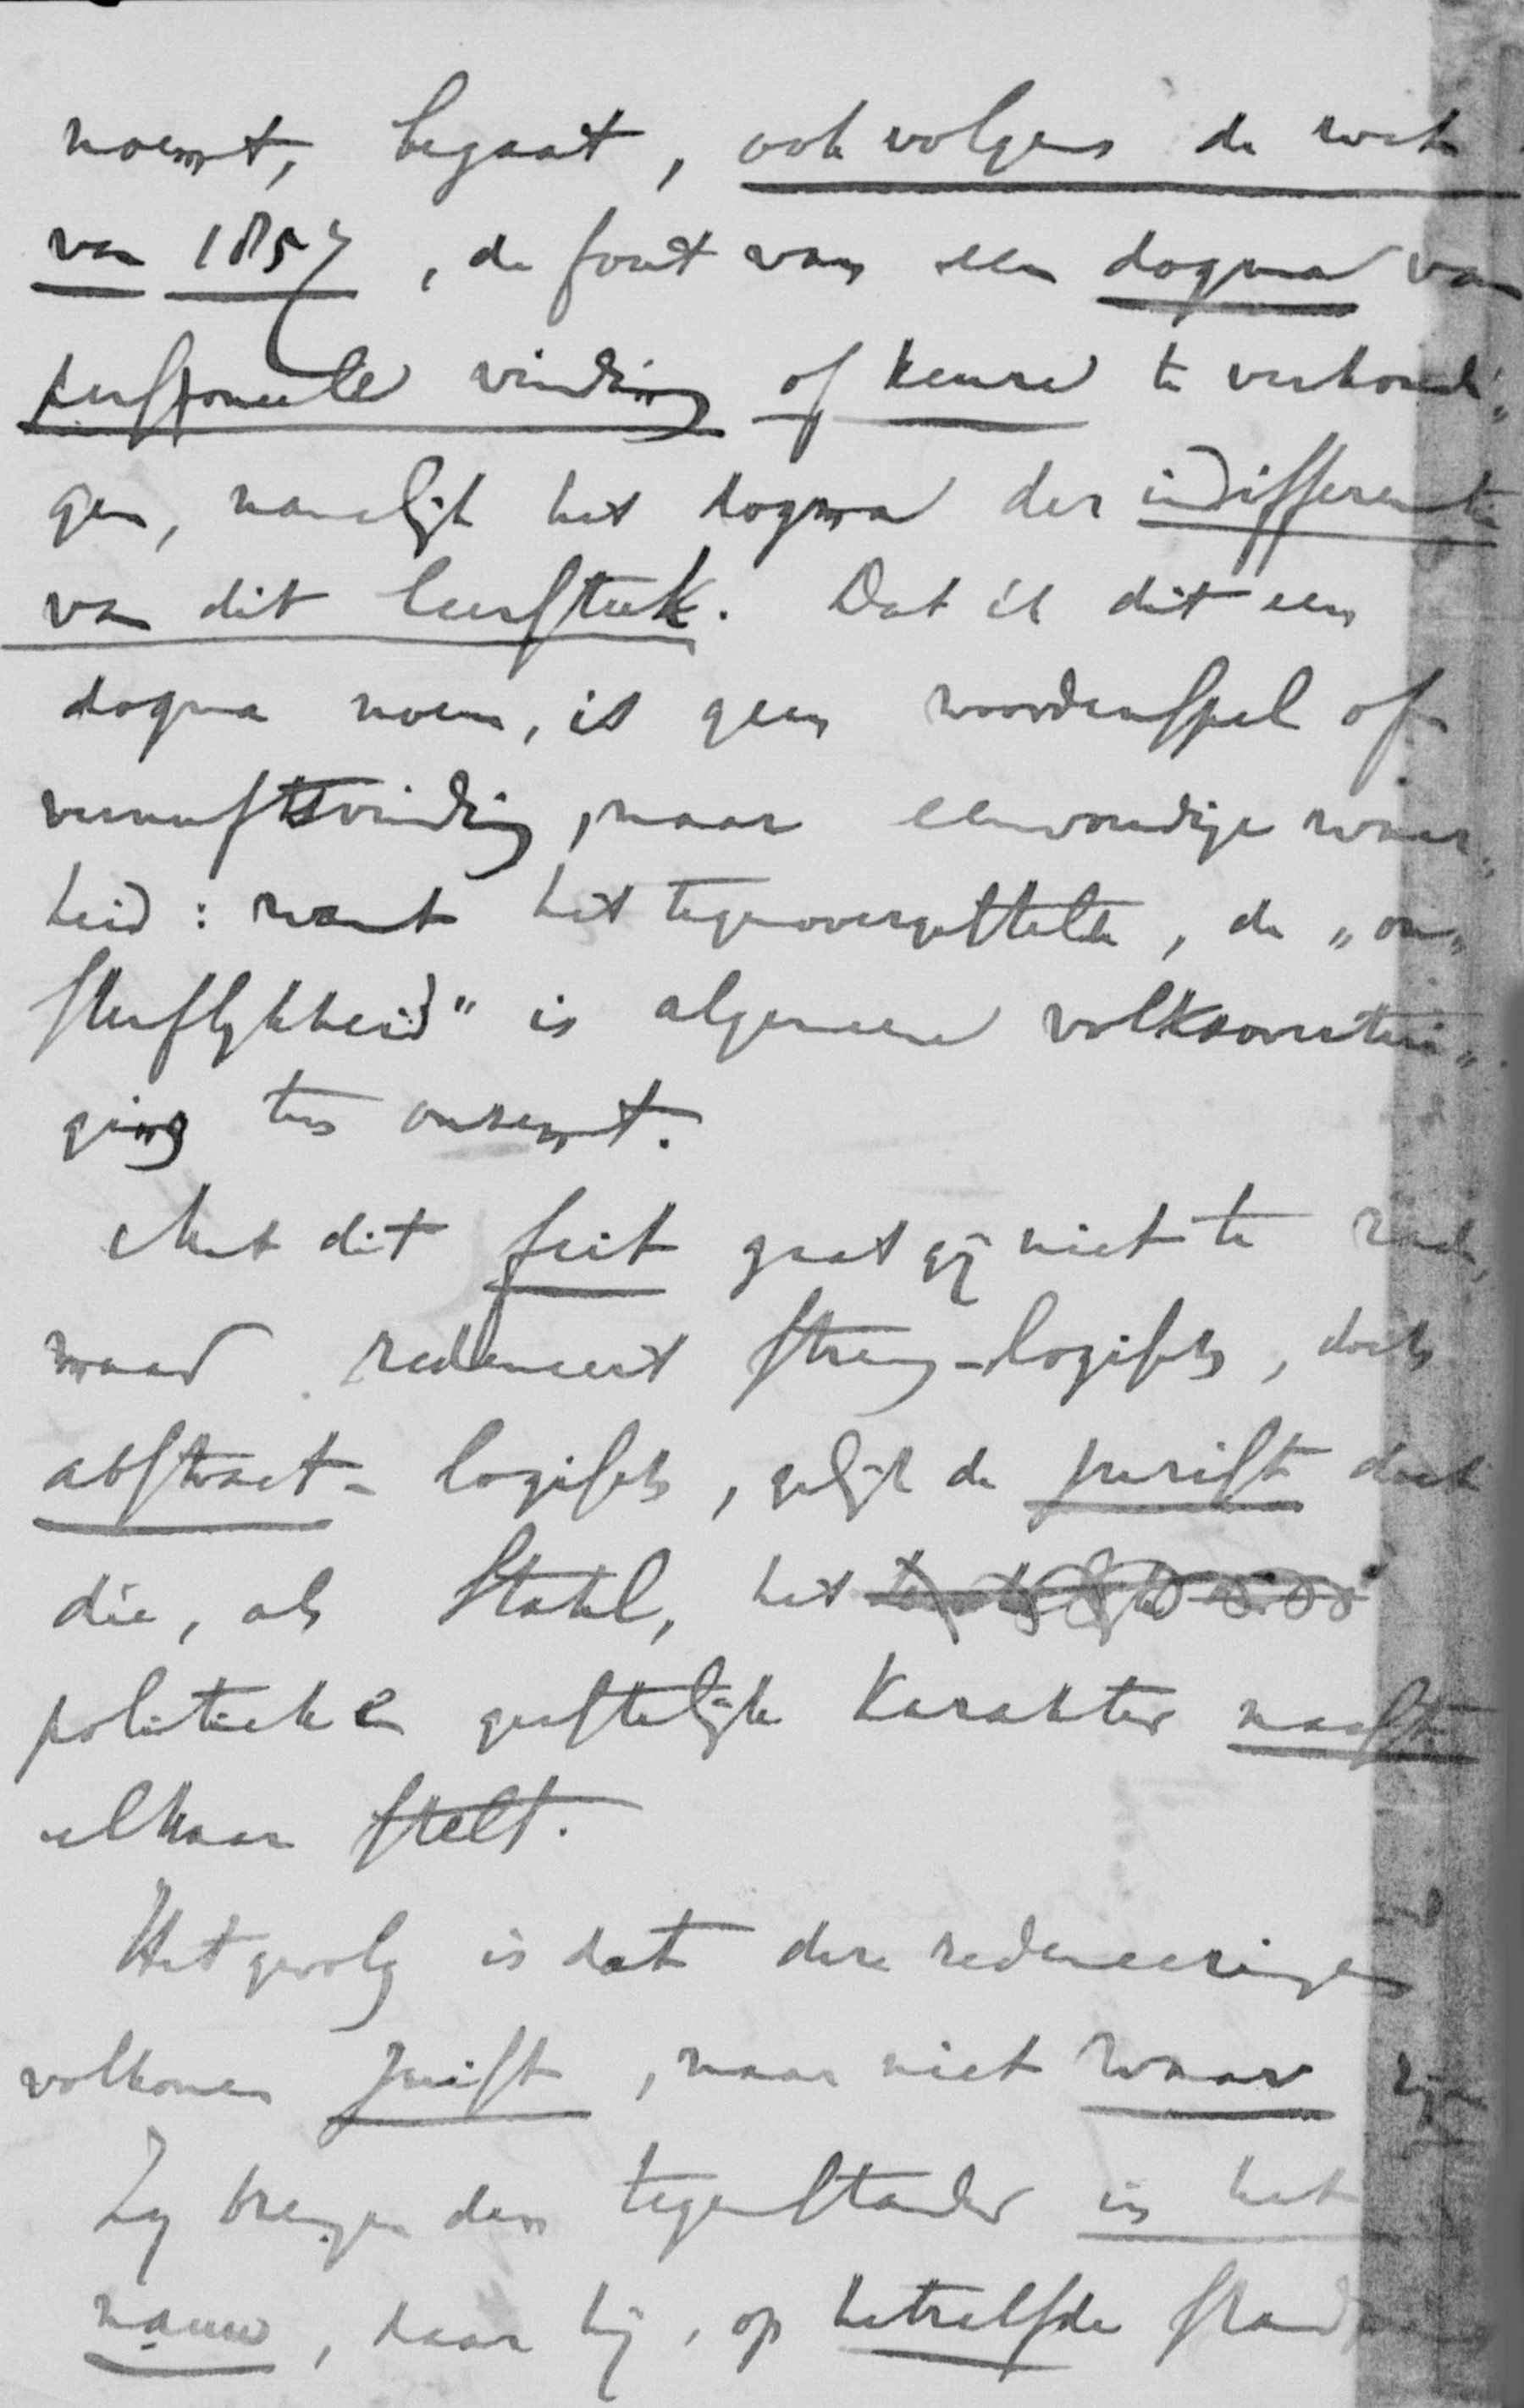 noemt, begaat, ook volgens de wet
van 1857, de fout van een dogma van
persoonele vinding of keure te verkondi„
gen, namelijk het dogma der indifferentie
van dit leerstuk. Dat ik dit een
dogma noem, is geen woordenspel of
vernuftsvinding, maar eenvoudige waar„
heid: want het tegenovergestelde, de „on„
sterflykheid" is algemeene volksovertui„
ging ten onzent.
Met dit feit gaat gij niet te rade,
maar redeneert streng-logisch, doch
abstract-logisch, gelijk de jurist doet
die, als Stahl, het
politieke en geestelijke karakter naast
elkaar stelt.
Het gevolg is dat deze redeneeringen
volkomen juist, maar niet waar zijn
Zy brengen den tegenstander in het
nauw, daar hij, op hetzelfde stand